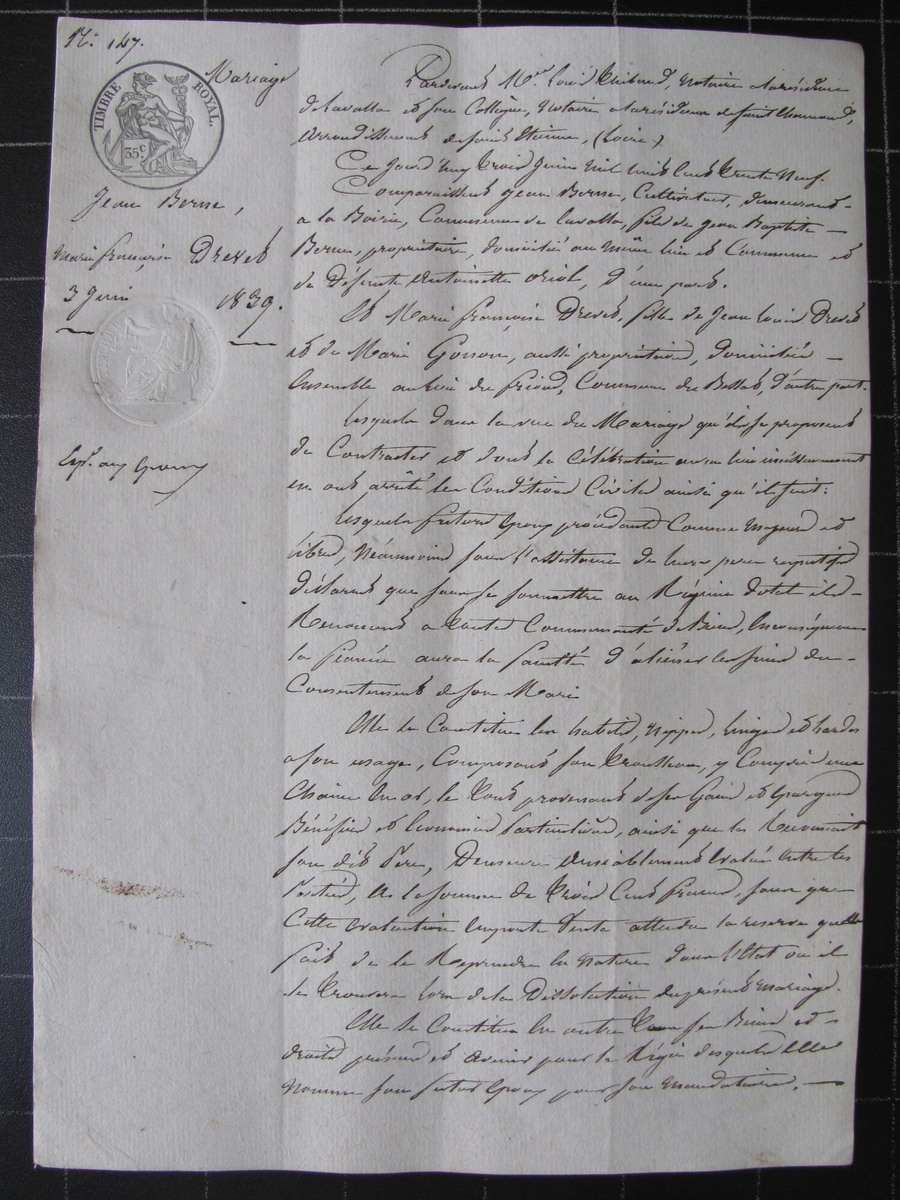 N.º 147.
Mariage
TIMBRE ROYAL.
35 c
Jean Borne,
Marie françoise Drevet
3 Juin 1839.
Exp.on aux Epoux
Pardevant M.tre Louis Thibaud, Notaire à la résidence
de Lavalla et son Collègue, Notaire à la résidence de Saint Chamond,
Arrondissement de Saint Etienne, (Loire)
Ce Jourd'huy trois Juin mil huit cent trente neuf.
Comparaissent Jean Borne, Cultivateur, demeurant
à la Boirie, Commune de Lavalla, fils de Jean Baptiste
Borne, propriétaire, domicilié au même lieu et Commune et
de Défunte Antoinette oriol, d'une part.
Et Marie françoise Drevet, fille de Jean Louis Drevet
et de Marie Gonon, aussi propriétaires, domiciliés
Ensemble au lieu du, Commune du Bessat, d'autre part.
Lesquels dans la vue du Mariage qu'ils se proposent
de Contracter et dont la Célébration aura lieu incessamment
en ont arrêté les Conditions Civiles ainsi qu'il suit:
Lesquels futurs Epoux procédants Comme Majeurs et
libres, Néanmoins sous l'assistance de leurs pères respectifs
déclarent que sans se soumettre au Régime dotal ils
Renoncent à toute Communauté de Biens, En conséquence
la fiancée aura la faculté d'aliéner les siens du
Consentement de son Mari
Elle se Constitue les habits, nippes, linges et hardes
à son usage, Composant son trousseau, y Compris une
Chaine En or, le tout provenant de ses Gains et Epargnes
Bénéfices et économies particulières, ainsi que le Reconnait
son dit Père, Demeure amiablement Evalué Entre les
Parties, à la somme de trois Cent francs, sans que
Cette évaluation Emporte Vente attendu la réserve qu'elle
fait de le Reprendre En Nature dans l'Etat où il
se trouvera lors de la Dissolution du présent mariage.
Elle se Constitue En outre tous ses Biens et
droits présents et avenir pour la Régie desquels Elle
Nomme son futur Epoux pour son Mandataire.